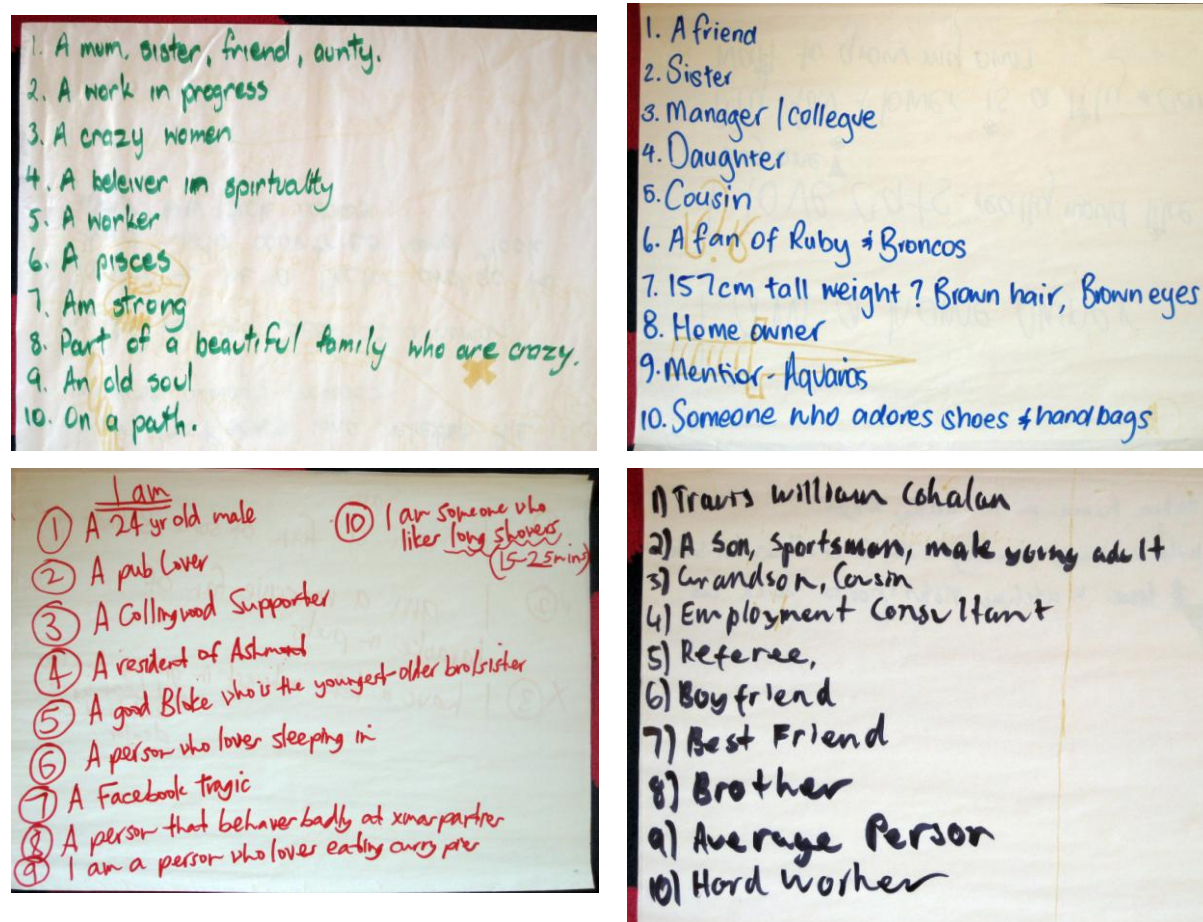 1. A mum, sister, friend, aunty.
2. A work in progress
3. A crazy women
4. A beleiver im spirtuality
5. A worker
6. A pisces
7. Am strong
8. Part of a beautiful family who are crazy.
9. An old soul
10. On a path.
1. A friend
2. Sister
3. Manager / collegue
4. Daughter
5. Cousin
6. A fan of Ruby & Broncos
7. 157cm tall weight? Brown hair, Brown eyes
8. Home owner
9. Mentior - Aquaras
10. Someone who adores shoes & handbags
I am
1 A 24 yr old male
2 A pub lover
3 A Collingwood Supporter
4 A resident of Ashmont
5 A good Bloke who is the youngest-older bro/sister
6 A person who lover sleeping in
7 A Facebook tragic
8 A person that behaver badly at xmas partier
9 I am a person who lover eating curry pier
10 I am someone who
liker long showers
(15-25mins)
1) Travis William Cohalan
2) A son, sportsman, male young adult
3) Grandson, Cousin
4) Employment Consultant
5) Referee,
6) Boyfriend
7) Best Friend
8) Brother
9) Average Person
10) Hard Worker